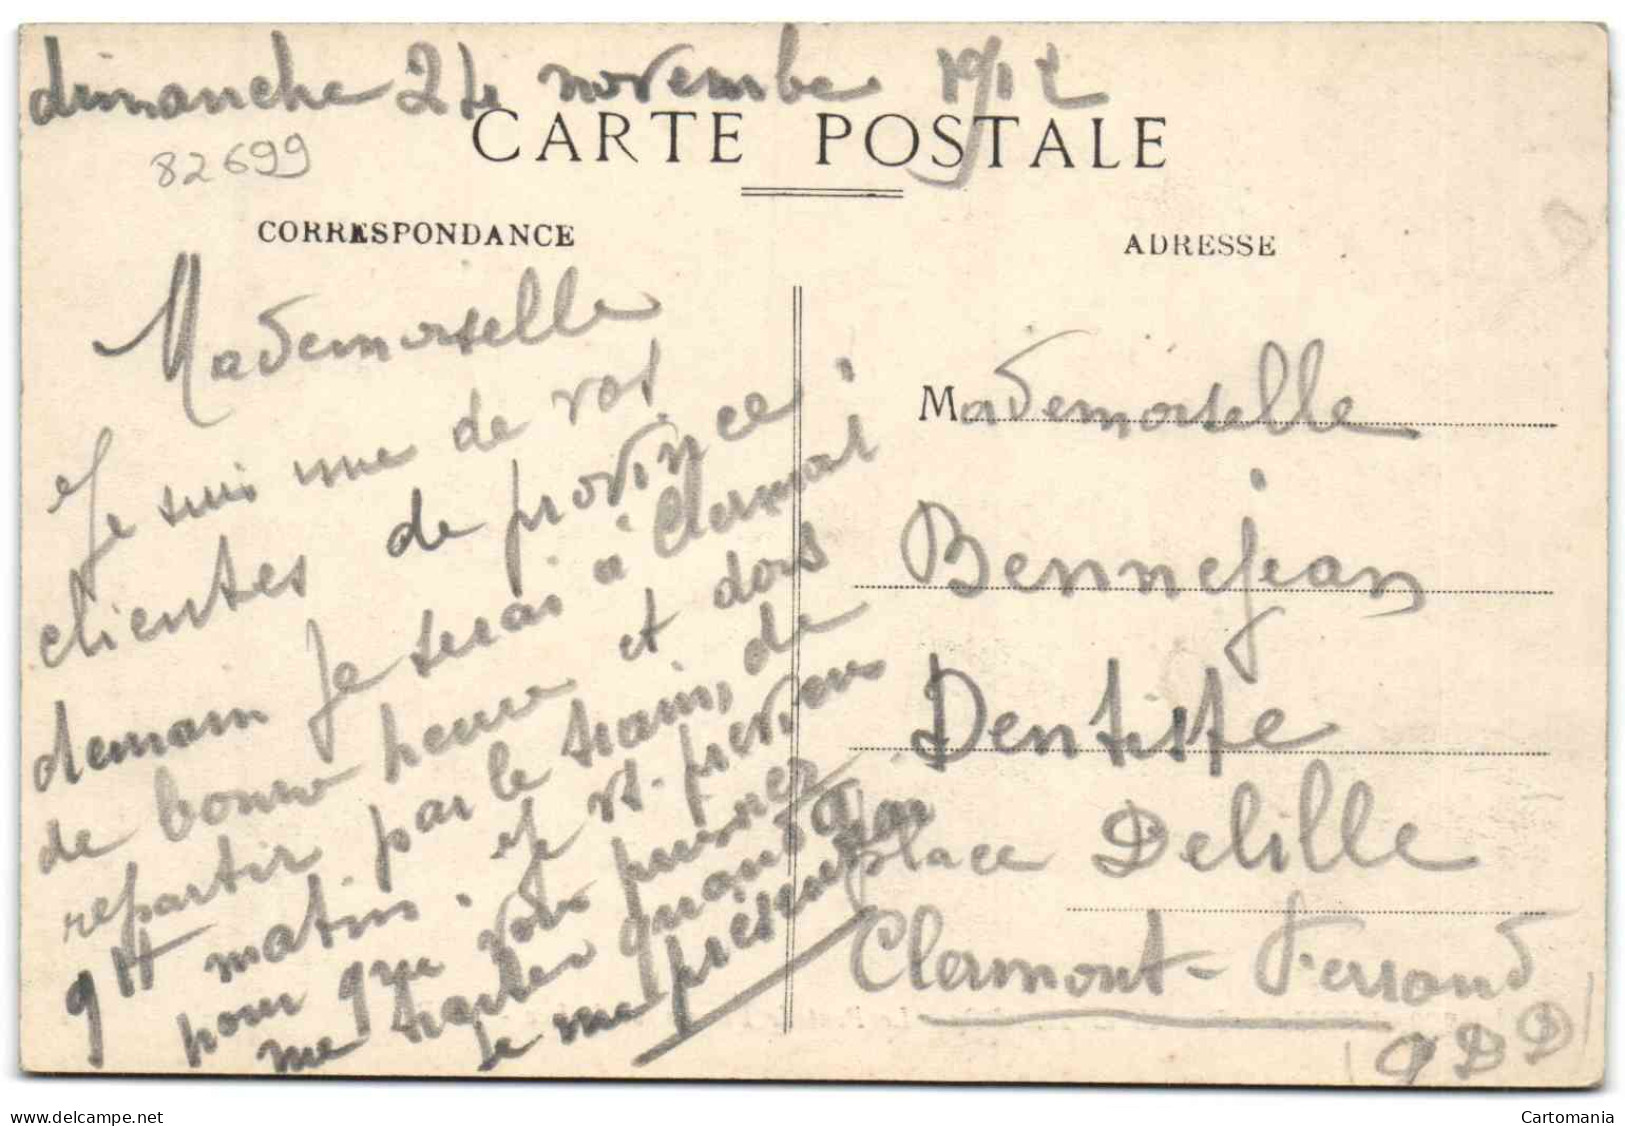 dimanche 24 novembre 1912
CARTE POSTALE
82699
CORRESPONDANCE
ADRESSE
Mademoiselle
Je suis une de vos
clientes de province
demain je serai à Clermont
de bonne heure et dois
repartir par le train, de
9H matin. Je vs préviens
pour que vous puissiez
me traiter quand
je me présenterai
Mademoiselle
Bennejean
Dentiste
place Delille
Clermont-Ferrand
(PDD)
delcampe.net
Cartomania